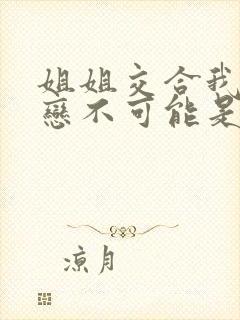 姐姐交合我
戀不可能是
涼月